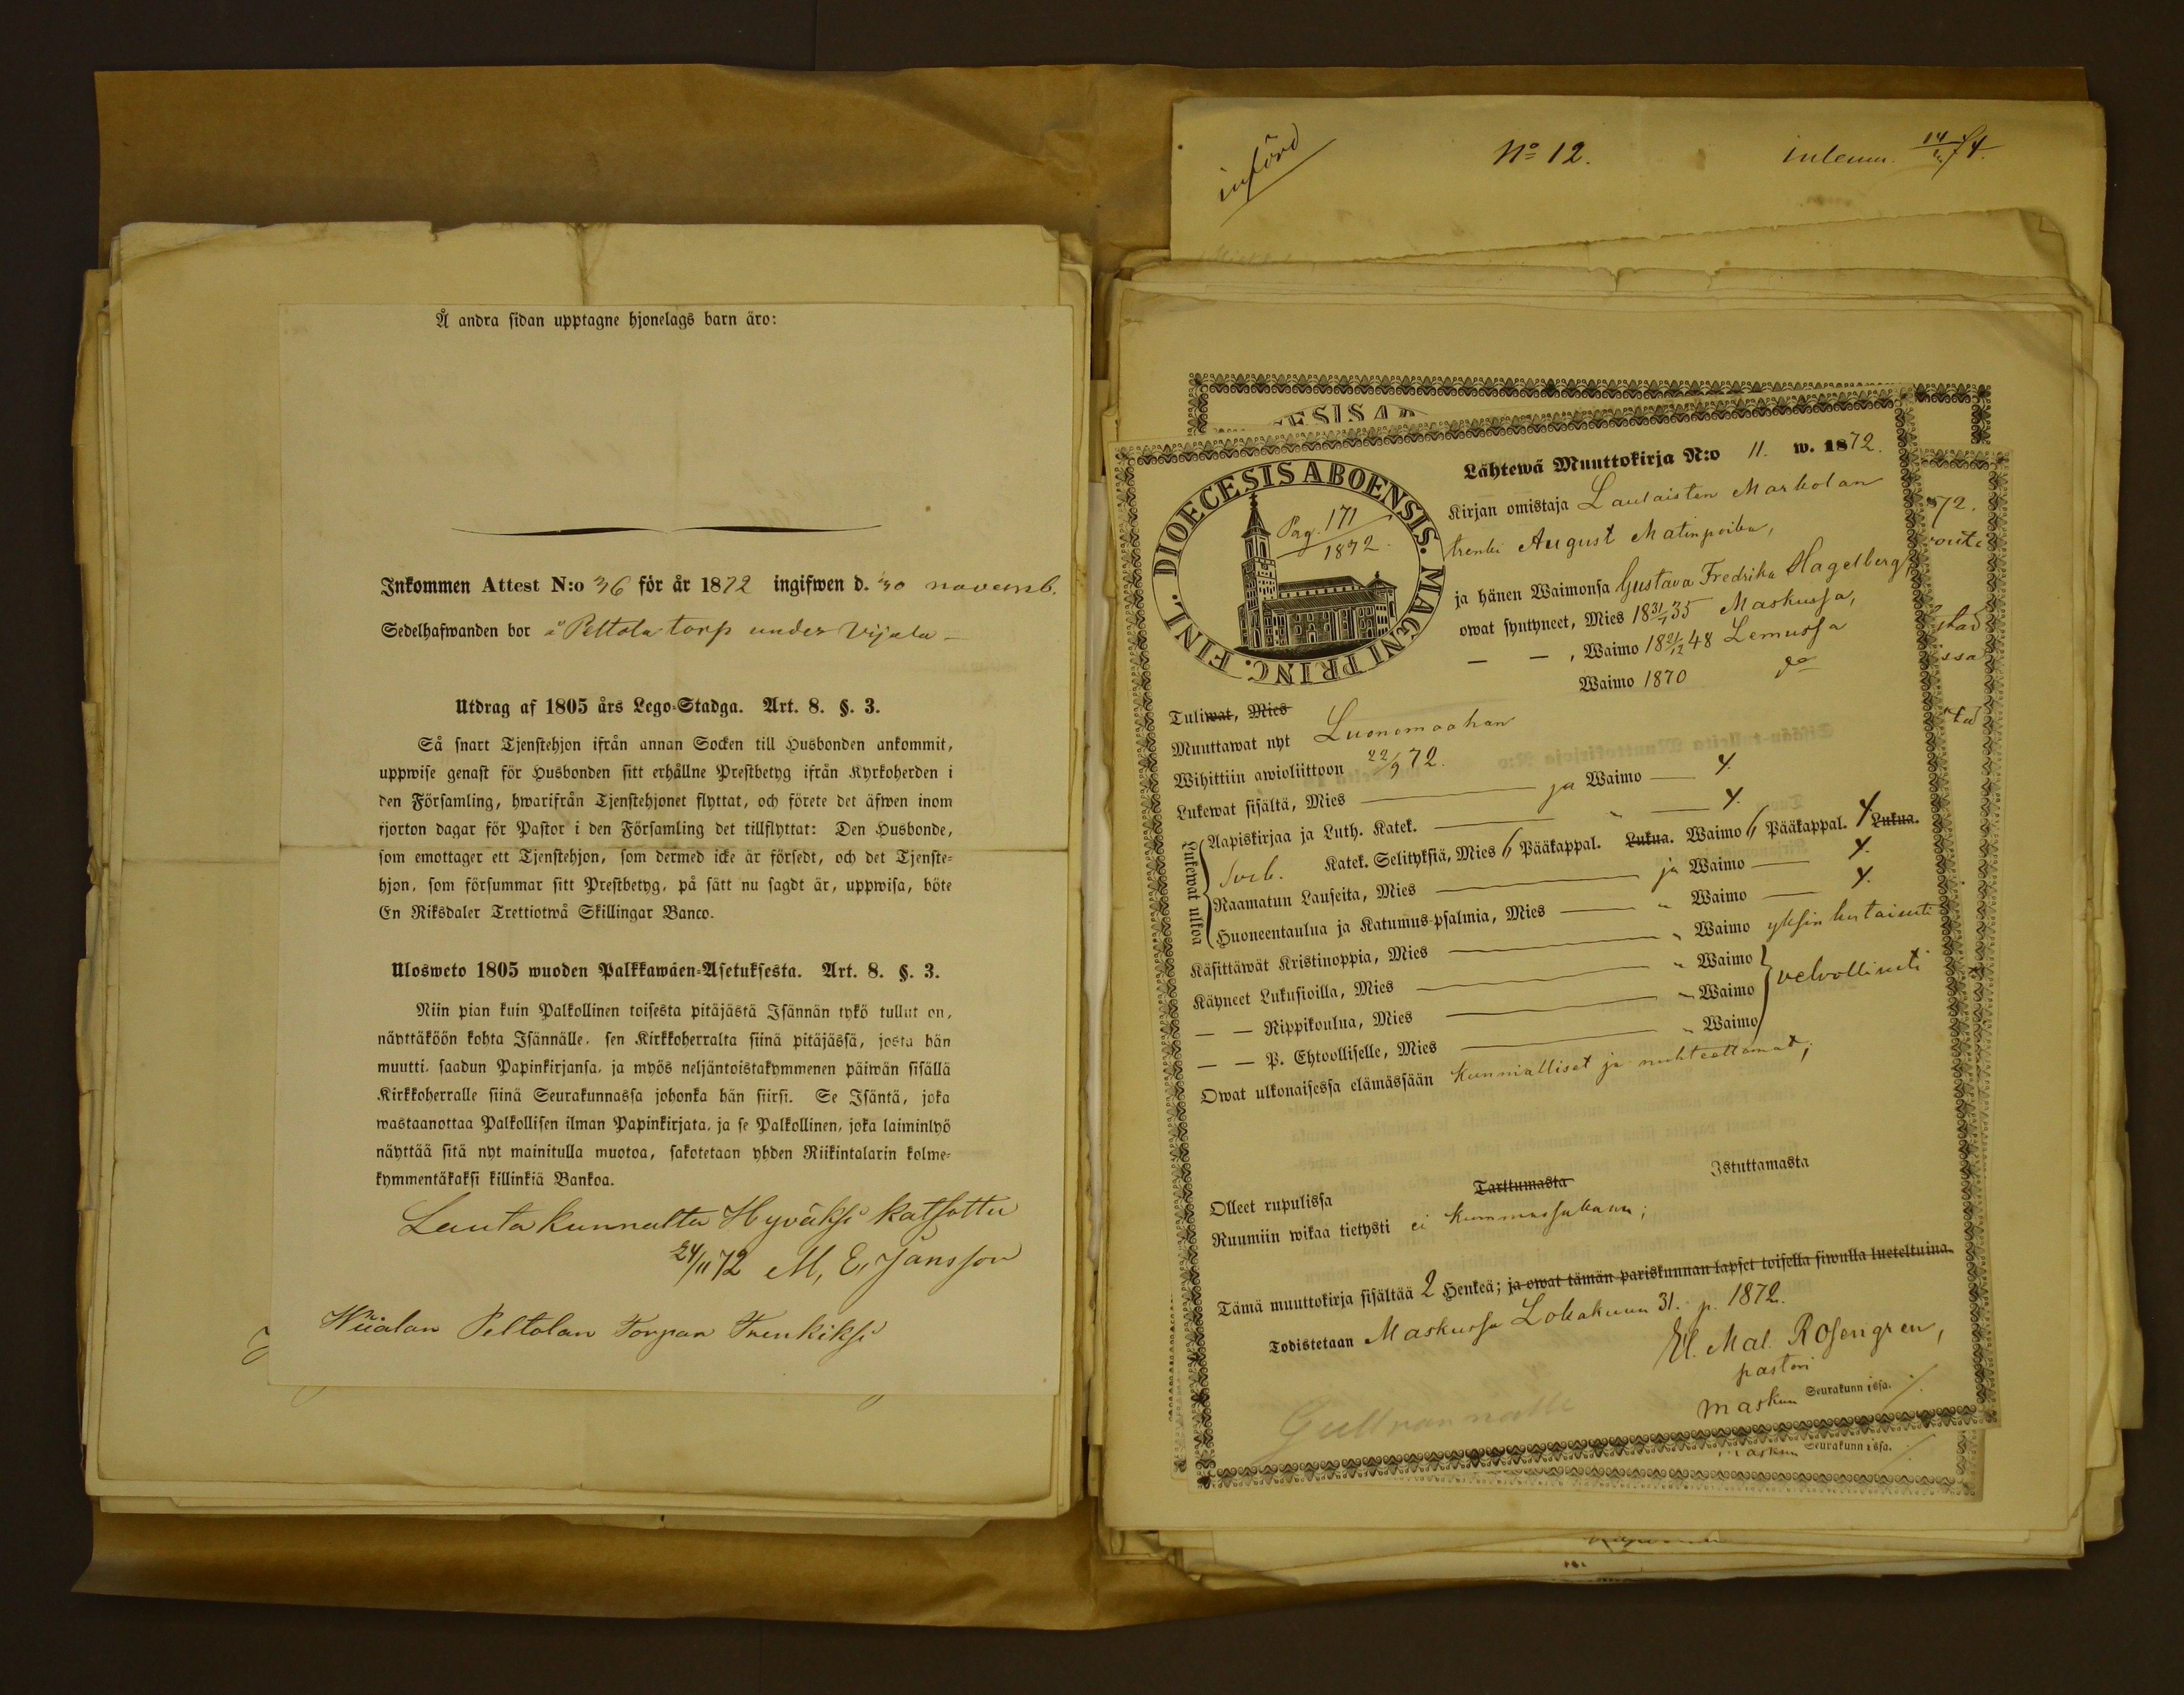 Å andra sidan upptagne hjonelags barn äro:
Inkommen Attest N:o 36 för år 1872 ingifwen d. 30 novemb.
Sedelhafwanden bor å Peltola torp under Vijala –
Utdrag af 1805 års Lego-Stadga. Art. 8. §. 3.
Så snart Tjenstehjon ifrån annan Socken till Husbonden ankommit,
uppwise genast för Husbonden sitt erhållne Prestbetyg ifrån Kyrkoherden i
den Församling, hwarifrån Tjenstehjonet flyttat, och förete det äfwen inom
fjorton dagar för Pastor i den Församling det tillflyttat: Den Husbonde,
som emottager ett Tjenstehjon, som dermed icke är försedt, och det Tjenste-
hjon, som försummar sitt Prestbetyg, på sätt nu sagdt är, uppwisa, böte
En Riksdaler Trettiotwå Skillingar Banco.
Ulosweto 1805 wuoden Palkkawäen-Asetuksesta. Art. 8. §. 3.
Niin pian kuin Palkollinen toisesta pitäjästä Isännän tykö tullut on,
näyttäköön kohta Isännälle, sen Kirkkoherralta siinä pitäjässä, josta hän
muutti, saadun Papinkirjansa, ja myös neljäntoistakymmenen päiwän sisällä
Kirkkoherralle siinä Seurakunnassa johonka hän siirsi. Se Isäntä, joka
wastaanottaa Palkollisen ilman Papinkirjata, ja se Palkollinen, joka laiminlyö
näyttää sitä nyt mainitulla muotoa, sakotetaan yhden Riikintalarin kolme-
kymmentäkaksi killinkiä Bankoa.
Lautakunnalta Hyväksi katsottu
24/11 72 M, E, Jansson
Wiialan Peltolan Torpan Trenkiksi
införd
No 12.
DIOECESIS ABOENSIS. MAGNI PRINC. FINL.
Pag. 171
1872.
Lähtewä Muuttokirja N:o 11. w. 1872.
Kirjan omistaja Laulaisten Markolan
trenki August Matinpoika,
ja hänen Waimonsa Gustava Fredrika Hagelberg
owat syntyneet, Mies 18 31/7 35 Maskussa,
— — , Waimo 18 21/12 48 Lemussa
Tuliwat, Mies Waimo 1870 do
Muuttawat nyt Luonomaahan
Wihittiin awioliittoon 22/9 72.
Lukewat sisältä, Mies — ja Waimo — 4.
Lukewat ulkoa
Aapiskirjaa ja Luth. Katek. — " — 4.
Sveb. Katek. Selityksiä, Mies 6 Pääkappal. Lukua. Waimo 6 Pääkappal. 4 Lukua.
Raamatun Lauseita, Mies — ja Waimo — 4.
Huoneentaulua ja Katumus-psalmia, Mies — " Waimo — 4.
Käsittäwät Kristinoppia, Mies — " Waimo yksinkertaisesti
Käyneet Lukusioilla, Mies — " Waimo
— — Rippikoulua, Mies — " Waimo velvollisesti
— — P. Ehtoolliselle, Mies — " Waimo
Owat ulkonaisessa elämässään kunnialliset ja nuhteettomat;
Olleet rupulissa Tarttumasta Istuttamasta
Ruumiin wikaa tietysti ei kummassakaan;
Tämä muuttokirja sisältää 2 Henkeä; ja owat tämän pariskunnan lapset toisella siwulla lueteltuina.
Todistetaan Maskussa Lokakuun 31. p. 1872.
El. Mal. Rosengren,
pastori
Maskun Seurakunnissa.
Gullrannalle
Seurakunnissa.